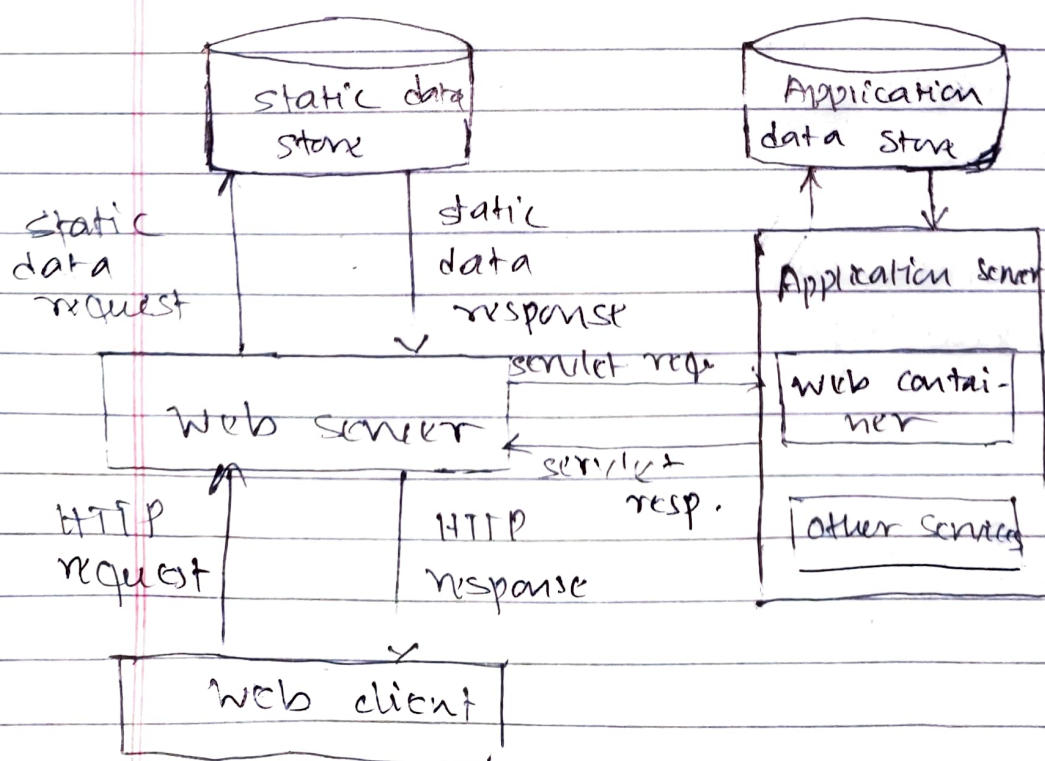 static data
store
Application
data store
static
data
request
static
data
response
Application server
servlet req.
web contai-
ner
Web server
servlet
resp.
HTTP
request
HTTP
response
other services
Web client